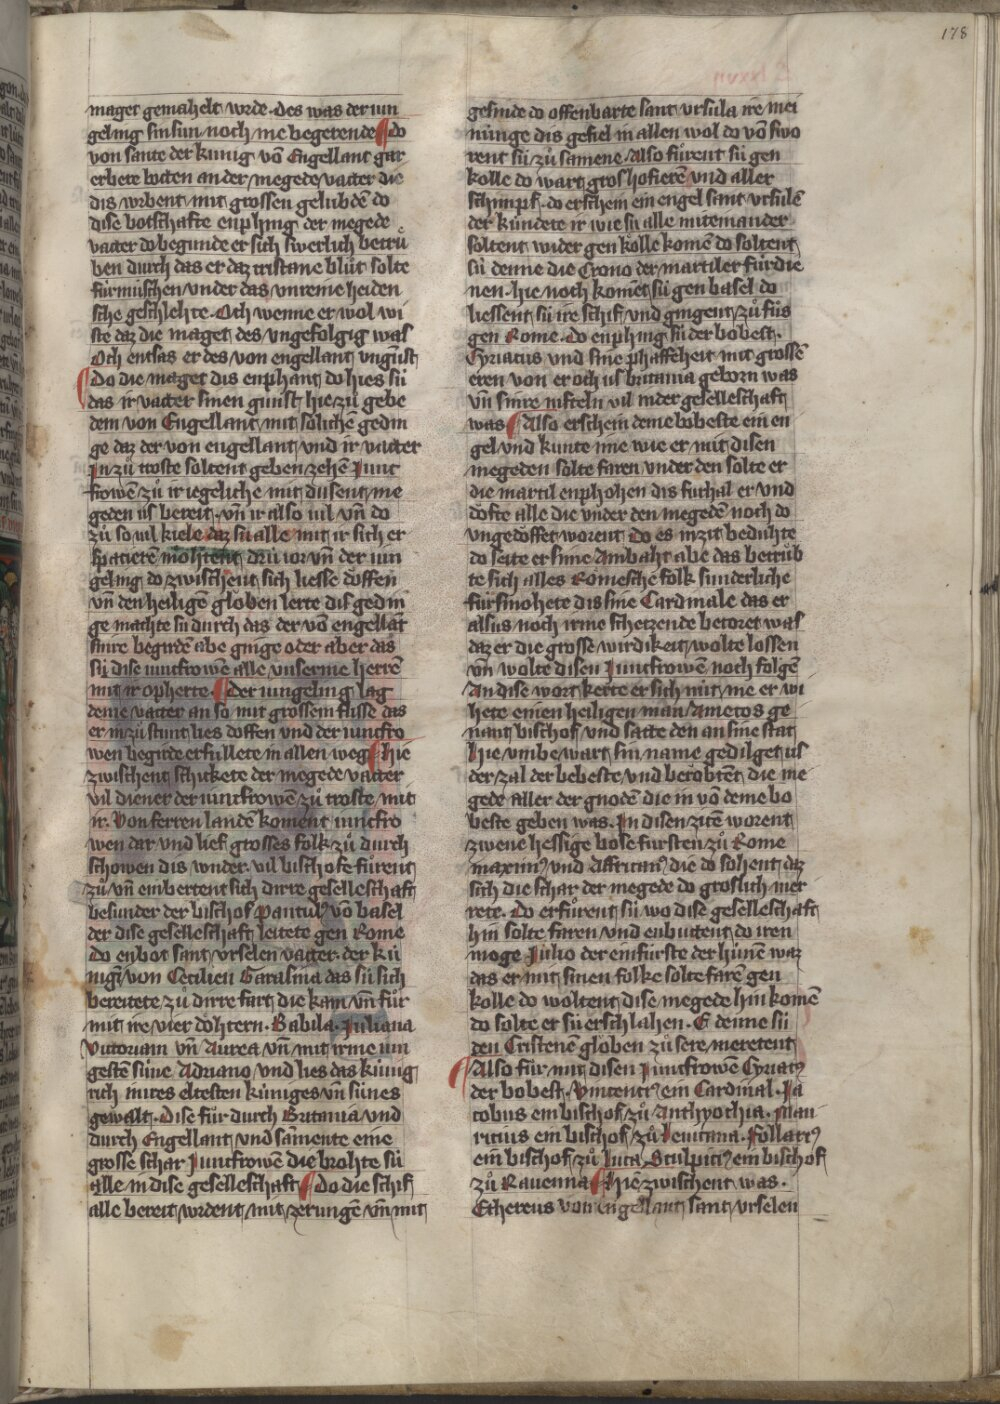 178
maget gemahelt wrde. des was der iun
geling sinsun noch me begerende do
von sante der kunig võ Engellant gar
erbere botten an der megede vatter die
dis wrbent mit grossen gelubdē do
dise botschafte enphing der megede
vatter do begunde er sich swerlich betrů
ben durch das er daz cristane blůt solte
fúrmúschen vnder das vnreine heiden
sche geschlehte. Och wenne er wol wi
ste daz die maget des vngefolgig was
Och entsas er des von engellant vngunst
Do die maget dis enphant do hies sú
das ir vatter sinen gunst hie zů gebe
dem von Engellant mit solichē gedin
ge daz der von engellant vnd ir vatter
In zů troste soltent geben zehē Junc
frowē zů ir iegeliche mit dusent me
geden us bereit. vñ ir also uil vñ do
zů so uil kiele daz sú alle mit ir sich er
spatierē mohtent drú ior vñ der iun
geling do zwischent sich liesse doffen
vñ den heiligē globen lerte dis gedin
ge machte sú durch das der võ engellāt
sinre begirdē abe ginge oder aber das
sú dise iuncfrowē alle vnserme herrē
mit ir opherte der iungeling lag
deme vatter an so mit grossem flisse das
er in zů stunt lies doffen vnd der iuncfro
wen begirde erfúllete in allen weg hie
zwischent schikete der megede vatter
vil diener der iuncfrowē zů troste mit
ir. Von ferren landē koment iuncfro
wen dar vnd lief grosses folk zů durch
schowen dis wnder. vil bischofe fúrent
zů vñ embertent sich dirre geselleschaft
besunder der bischof pantulꝰ võ basel
der dise geselleschaft leitete gen Rome
Do enbot sant vrselen vatter der kú
nigī von Cecilien Garasina das sú sich
bereitete zů dirre fart die kam vñ fůr
mit ire vier dohtern. Babila. Juliana
Victoriam vñ Aurea vñ mit irme iun
gestē súne Adriano vnd lies das kúnig
rich inires eltesten kúniges vñ súnes
gewalt. Dise fůr durch Britania vnd
durch Engellant vnd samente eine
grosse schar Juncfrowē die brohte sú
alle in dise geselleschaft Do die schif
alle bereit wrdent mit zerungē vñ mit
gesinde do offenbarte sant vrsula ire mei
nunge dis gefiel in allen wol do võ swo
rent sú zů samene. Also fůrent sú gen
kolle do wart gros hofierē vnd aller
schimpf. do erschein ein engel sant vrsulē
der kúndete ir wie sú alle mitenander
soltent wider gen kolle komē do soltent
sú denne die Crono der martiler fúrdie
nen. hie noch komēt sú gen basel do
liessent sú ire schif vnd gingent zů fůs
gen Rome. do enphing sú der bobest.
Cyriacus vnd sine phaffeheit mit grossē
eren von er och us britania geborn was
vñ sinre nifteln vil in der geselleschaft
was Also erschein deme bobeste ein en
gel vnd kunte ime wie er mit disen
megeden solte faren vnder den solte er
die martil enphohen dis fúrhal er vnd
dofte alle die vnder den megedē noch do
vngedoffet worent Do es in zit beduhte
do seite er sine Ambaht abe das betrúb
te sich alles Römesche folk sunderliche
fúrsmohete dis sine Cardinale das er
alsus noch irme schetzende betoret was
daz er die grosse wirdikeit wolte lossen
vñ wolte disen Juncfrowē noch folgē
An dise wort kerte er sich nút me er wi
hete einen heiligen man Ametos ge
nant bischof vnd satte den an sine stat
hie vmbe wart sin name gedilget us
der zal der bebeste vnd berobtēt die me
gede aller der gnodē die in võ deme bo
beste geben was. In disen zitē worent
zwene hessige böse fúrsten zů Rome
maximꝰ vnd Affricanꝰ die do sohent daz
sich die schar der megede do groslich mer
rete. do erfůrent sú wo dise geselleschaft
hin solte faren vnd enbuttent do iren
moge Julio der ein fúrste der húnen waz
das er mit sinen folke solte farē gen
kolle do woltent dise megede hin komē
do solte er sú erschlahen. E denne sú
den Cristenē globen zů sere meretent
Also fůr mit disen Juncfrowē Cyriacꝰ
der bobest. Vincentiꝰ ein Cardinal. Ja
cobus ein bischof zů Anthyochia. Mau
ricius ein bischof zů leuitana. Follariꝰ
ein bischof zů luca Sculpiciꝰ ein bischof
zů Rauenna hie zwischent was.
Ethereus von engellant sant vrselen